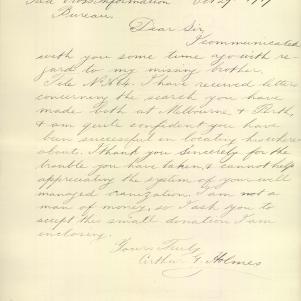 Red Cross Information Oct 29. 1917
Bureau.
Dear Sir
I communicated
with you some time ago with re-
gard to my missing brother.
File No
I have received letters
concerning the search you have
made both at Melbourne & Perth,
& am quite confident you have
been successful in locating his where-
abouts. I thank you Sincerely for the
trouble you have taken, & cannot help
appreciating the system of your well
managed I am not a
man of money, so I ask you to
accept the small donation I am
enclosing.
Yours Truly
Arthur G. Holmes